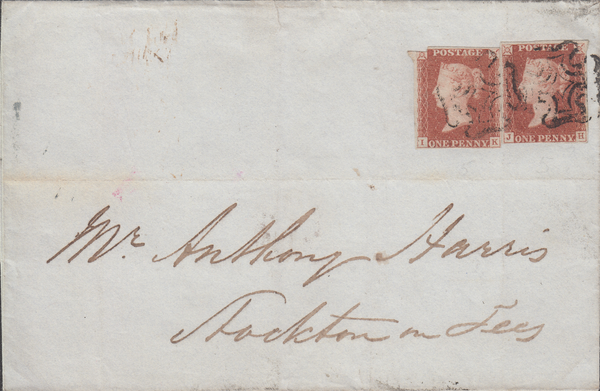 POSTAGE POSTAGE
ONE PENNY ONE PENNY
I K J H
Mr. Anthony Harris
Stockton on Tees